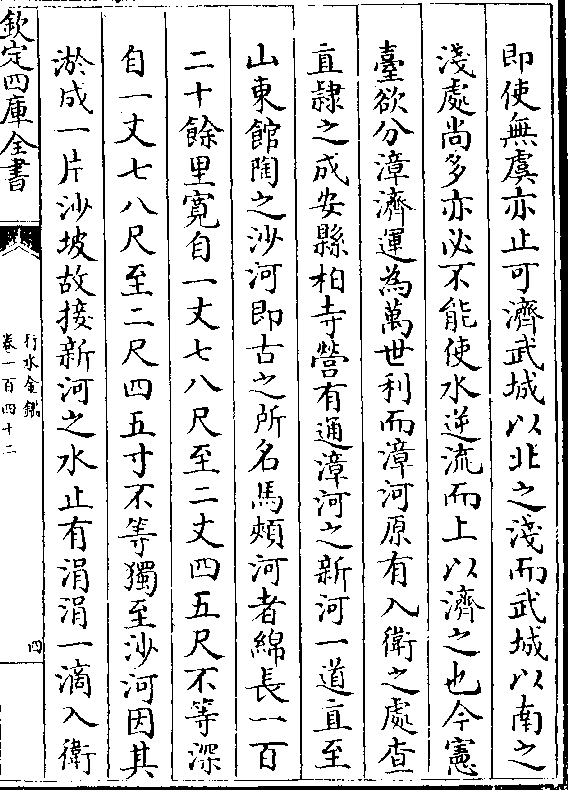 即使無虞亦止可濟武城以北之淺而武城以南之
淺處尚多亦必不能使水逆流而上以濟之也今憲
臺欲分漳濟運為萬世利而漳河原有入衛之處查
直隸之成安縣柏寺營有通漳河之新河一道直至
山東館陶之沙河即古之所名馬頰河者綿長一百
二十餘里寬自一丈七八尺至二丈四五尺不等深
自一丈七八尺至二尺四五寸不等獨至沙河因其
淤成一片沙坡故接新河之水止有涓涓一滴入衛
欽定四庫全書
行水金鑑
卷一百四十二
四